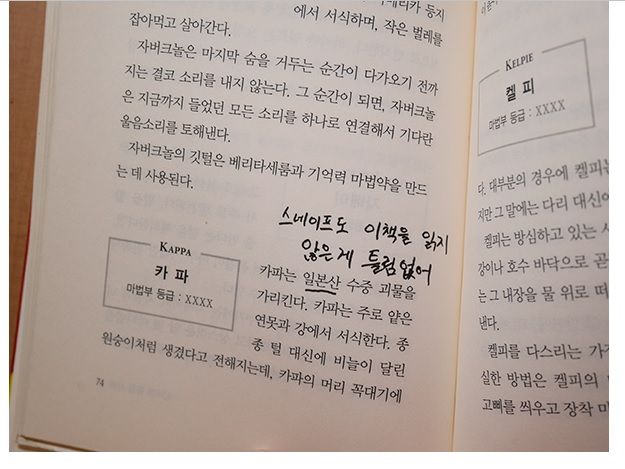 에서 서식하며, 작은 벌레를
잡아먹고 살아간다.
자버크놀은 마지막 숨을 거두는 순간이 다가오기 전까
지는 결코 소리를 내지 않는다. 그 순간이 되면, 자버크놀
은 지금까지 들었던 모든 소리를 하나로 연결해서 기다란
울음소리를 토해낸다.
자버크놀의 깃털은 베리타세룸과 기억력 마법약을 만드
는 데 사용된다.
스네이프도 이책을 읽지
않은게 틀림없어
KAPPA
카파
마법부 등급 : XXXX
카파는 일본산 수중 괴물을
가리킨다. 카파는 주로 얕은
연못과 강에서 서식한다. 종
종 털 대신에 비늘이 달린
원숭이처럼 생겼다고 전해지는데, 카파의 머리 꼭대기에
74
KELPIE
켈피
마법부 등급 : XXXX
다. 대부분의 경우에 켈피는
지만 그 말에는 다리 대신에
켈피는 방심하고 있는 사
강이나 호수 바닥으로 곧
는 그 내장을 물 위로 떠
낸다.
켈피를 다스리는 가장
실한 방법은 켈피의
고삐를 씌우고 장착 마